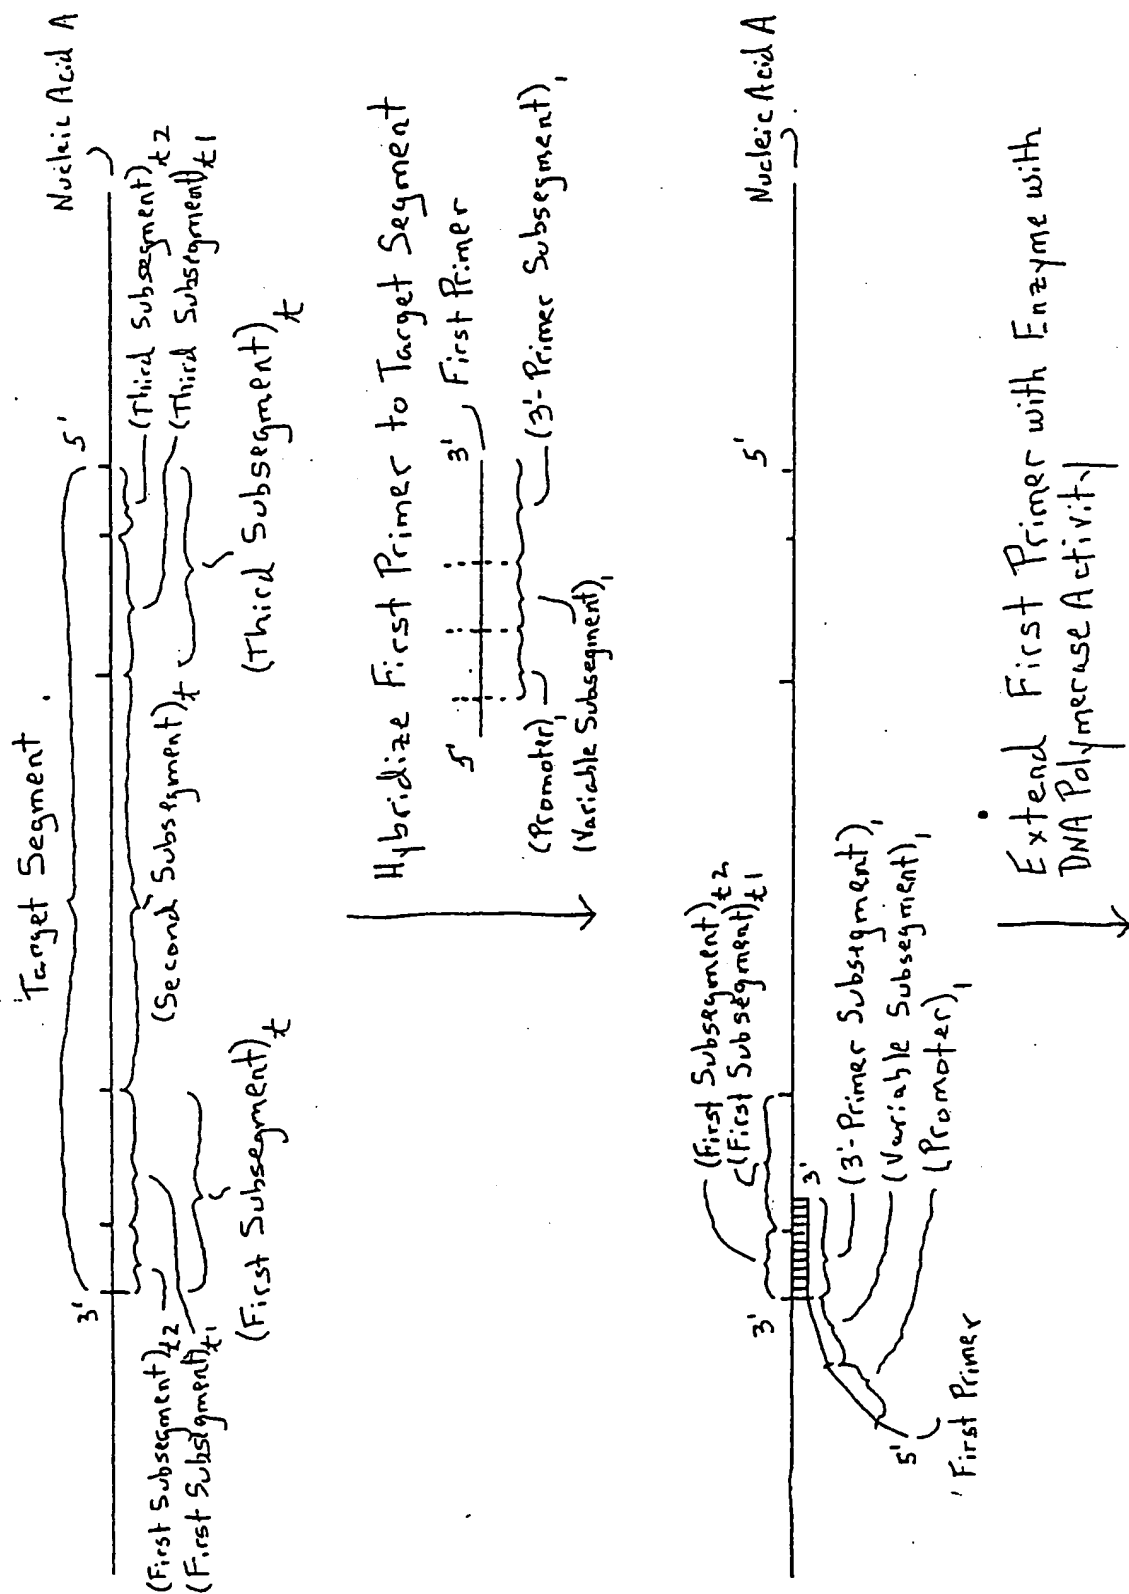 Target Segment
Nucleic Acid A
3'
5'
(First Subsegment)t2
(First Subsegment)t1
(First Subsegment)t
(Second Subsegment)t
(Third Subsegment)t2
(Third Subsegment)t1
(Third Subsegment)t
Hybridize First Primer to Target Segment
5'
3'
First Primer
(Promoter)1
(Variable Subsegment)1
(3'-Primer Subsegment)1
Nucleic Acid A
(First Subsegment)t2
(First Subsegment)t1
3'
5'
3'
(3'-Primer Subsegment)1
(Variable Subsegment)1
(Promoter)1
5'
First Primer
Extend First Primer with Enzyme with
DNA Polymerase Activity